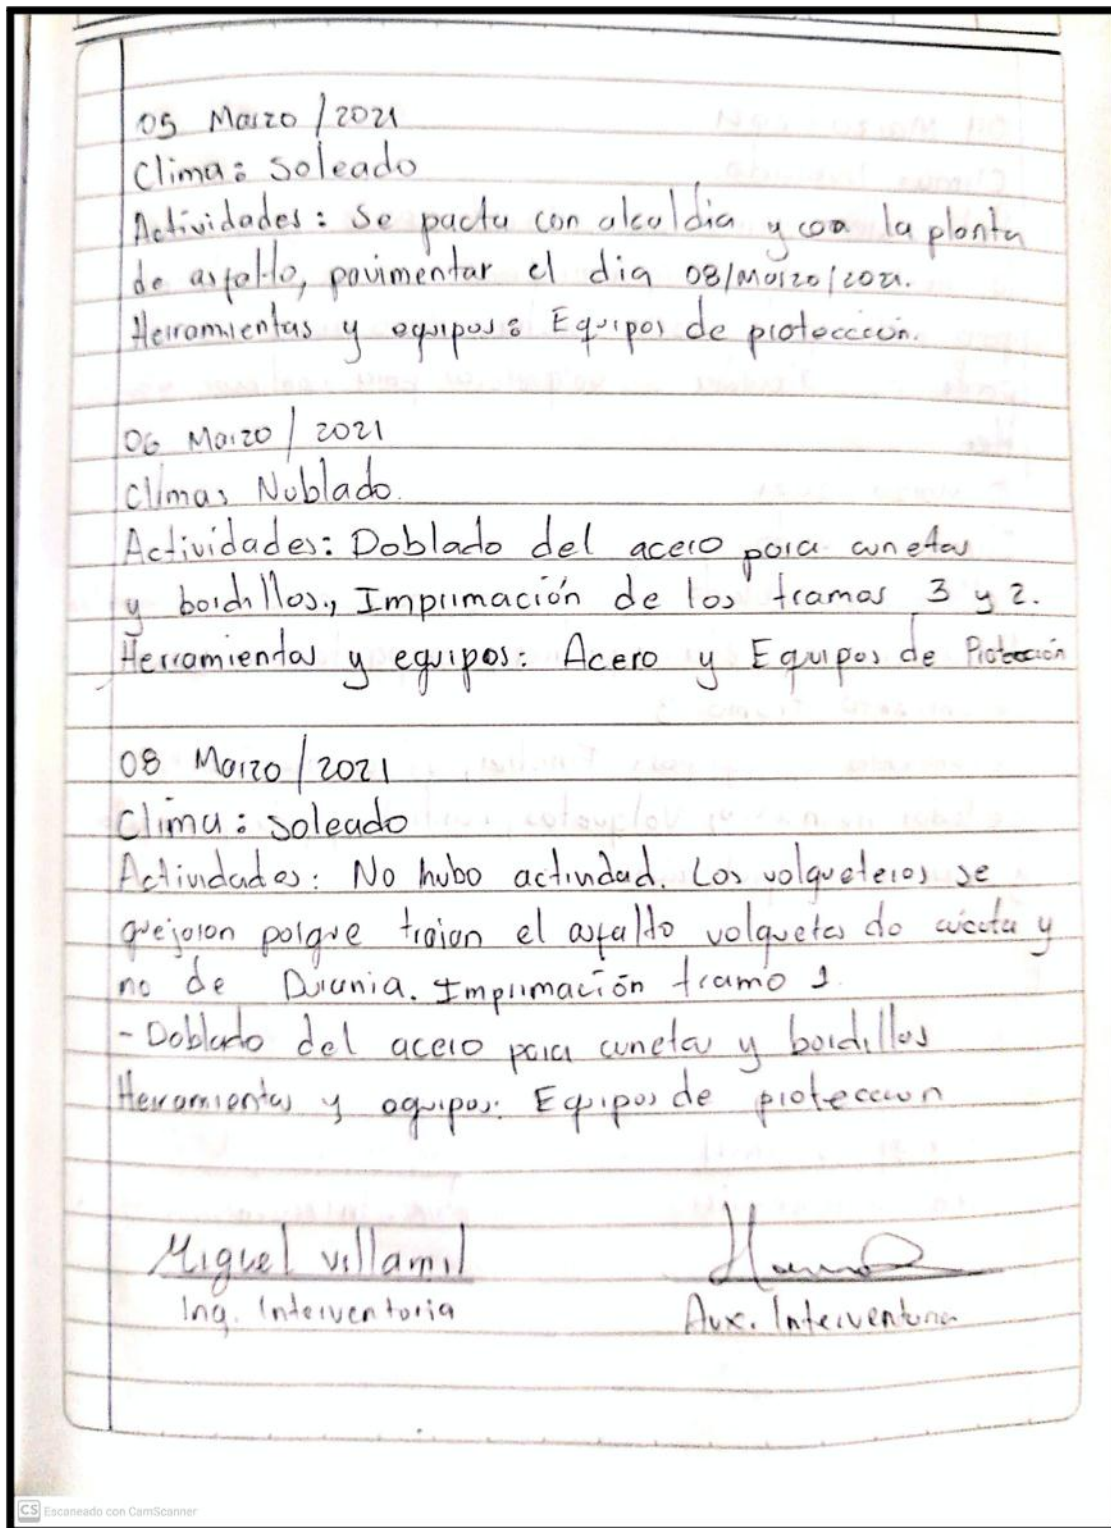 05 Marzo / 2021
Clima: Soleado
Actividades: Se pacta con alcaldia y con la planta
de asfalto, pavimentar el dia 08/marzo/2021.
Herramientas y equipos: Equipos de protección.
06 Marzo / 2021
Clima: Nublado.
Actividades: Doblado del acero para cunetas
y bordillos., Imprimación de los tramos 3 y 2.
Herramientas y equipos: Acero y Equipos de Protección
08 Marzo / 2021
Clima: Soleado
Actividades: No hubo actividad. Los volqueteros se
quejaron porque traian el asfalto volquetas de cúcuta y
no de Durania. Imprimación tramo 1.
- Doblado del acero para cunetas y bordillos
Herramientas y equipos: Equipos de proteccion
Miguel Villamil
Ing. Interventoria
Aux. Interventoria
CS Escaneado con CamScanner